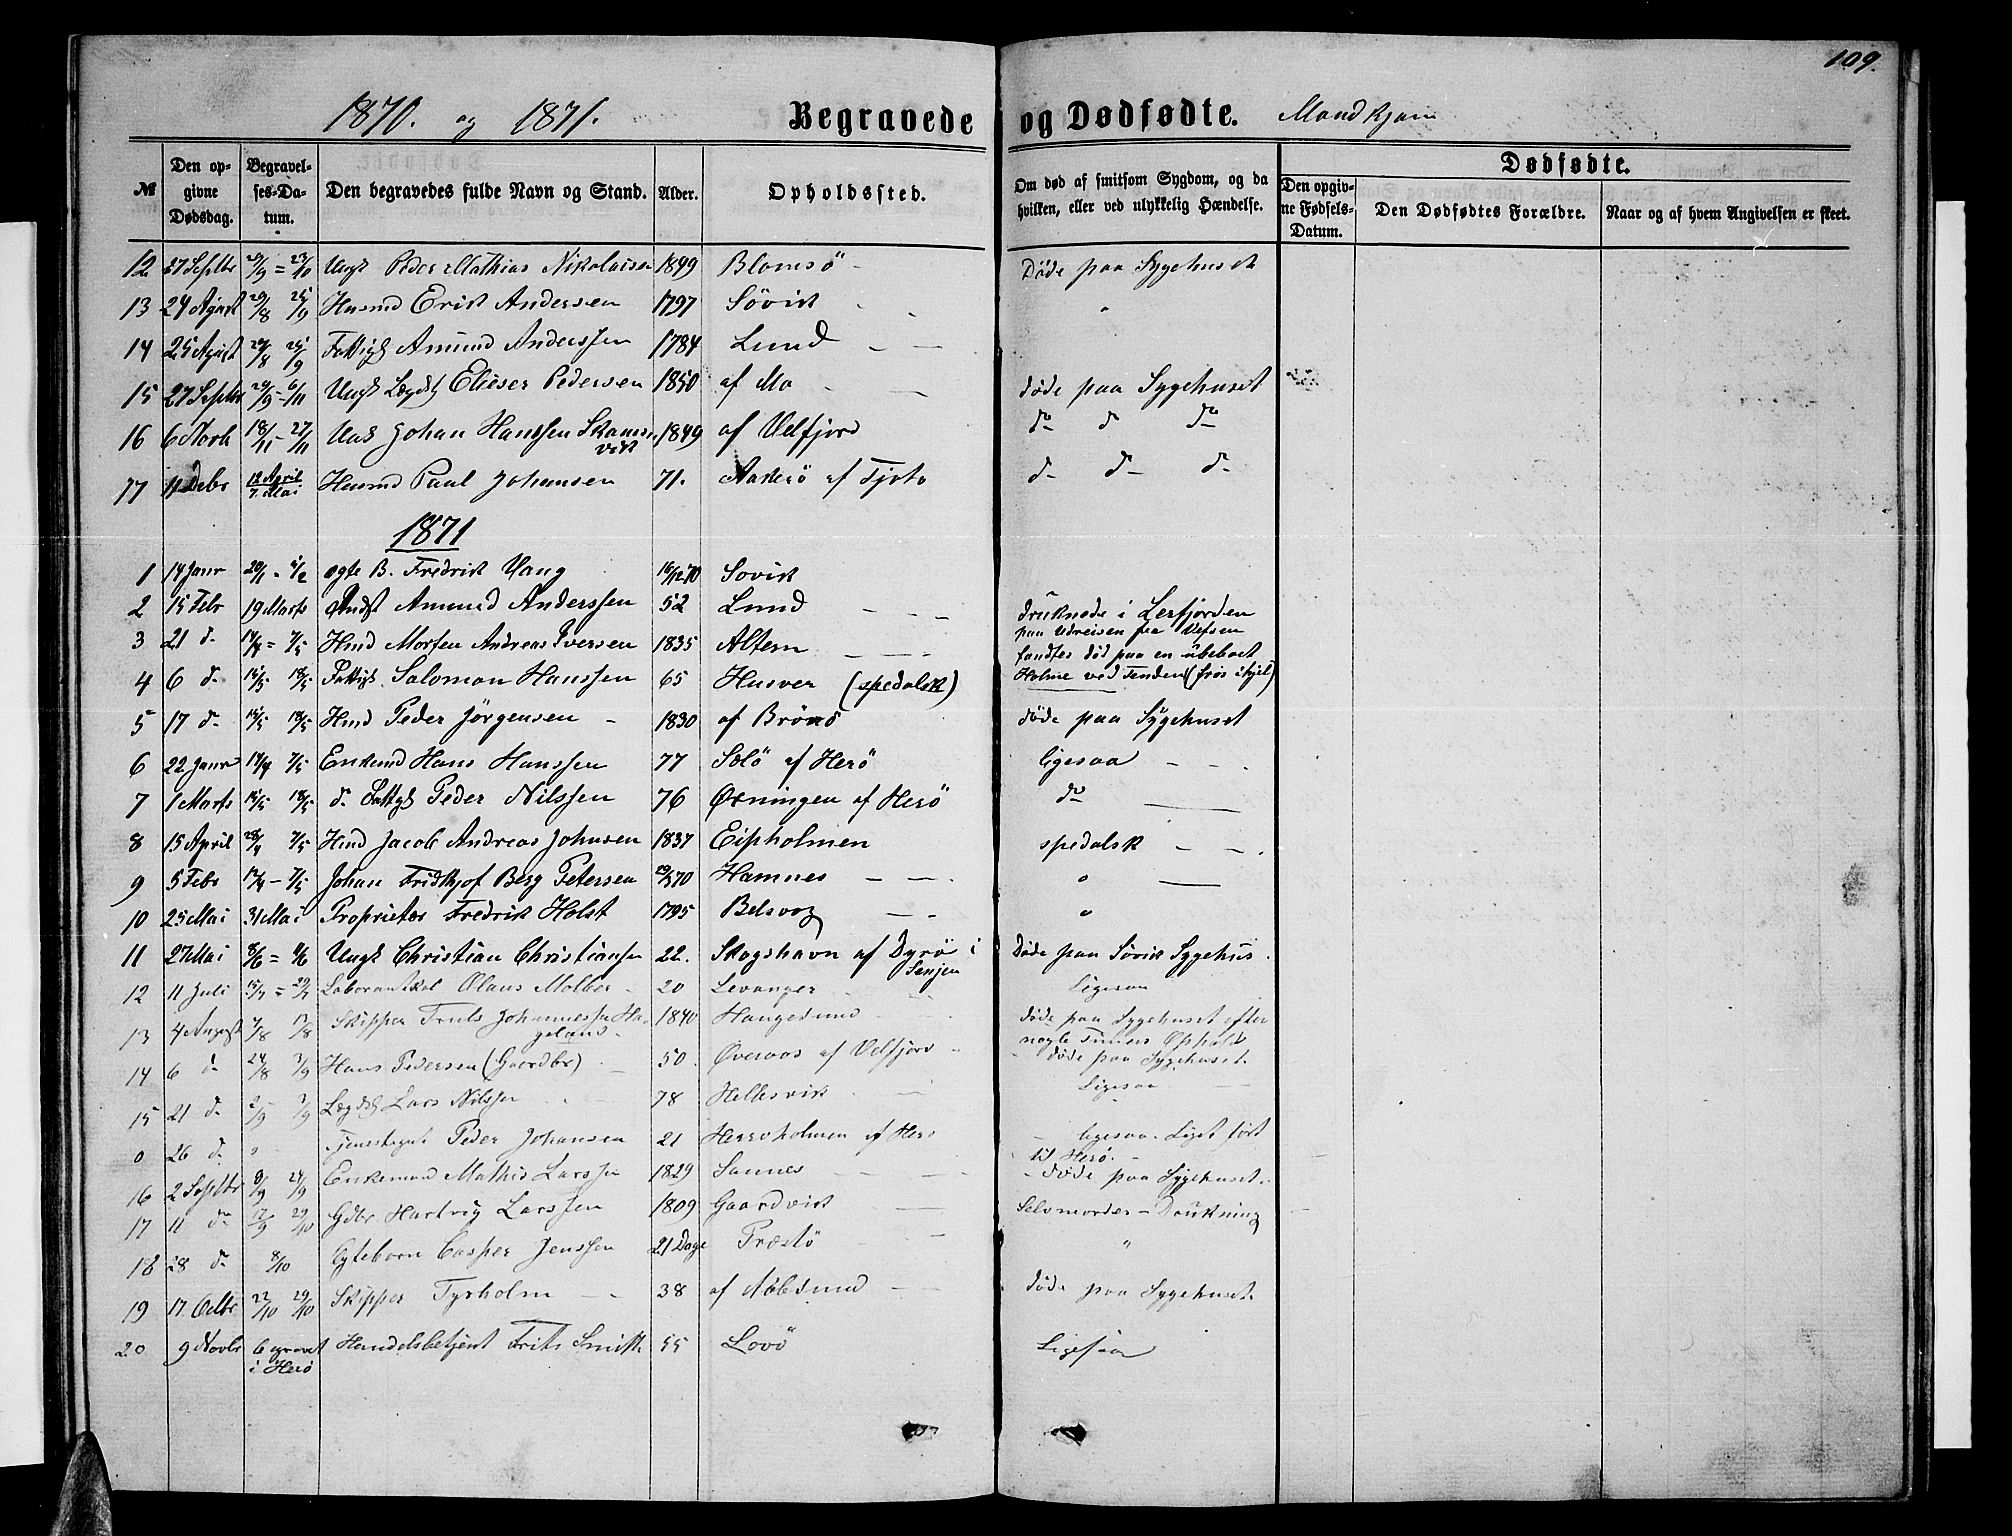 109.
1870. og 1871. Begravede og Dødfødte. Mandkjøn
№ Den opgivne Dødsdag. Begravelses-Datum. Den begravedes fulde Navn og Stand. Alder. Opholdssted. Om død af smitsom Sygdom, og da hvilken, eller ved ulykkelig Hændelse. Dødfødte. Den opgivne Fødsels-Datum. Den Dødfødtes Forældre. Naar og af hvem Angivelsen er skeet.
12 27 Septbr 29/9 = 23/10 Ungk Peder Mathias Nikolaisen 1849 Blomsö Döde paa Sygehuset
13 24 August 29/8 25/9 Husmd Erik Andersen 1797 Sövik "
14 25 August 29/8 25/9 Fattigl Amund Anderssen 1784 Lund
15 27 Septbr 29/9 - 6/11 Ungk Lægdsl Elieser Pedersen 1850 af Mo döde paa Sygehuset
16 6 Novb 18/11 - 27/11 Johan Hanssen Skamsvik 1849 af Velfjord do do do
17 11 Debr 12 April 7 Mai Husmd Paul Johansen 71. Aakerö af Tjøtø d- d- d-
1871
1 14 Janr 20/1 - 4/2 ægte B. Fredrik Vang 16/12 70 Sovik
2 15 Febr 19 Marts Amund Anderssen 52 Lund druknede i Lerfjorden
3 21 d- 14/4 = 7/5 Hmd Morten Andreas Iversen 1835 Altern paa Udreisen fra Vefsen
4 6 d- 14/5 18/5 Fattigl. Salomon Hanssen 65 Husver (spedalsk) fandtes død paa en ubeboet Holme ved Tenden (frös ihjel)
5 17 d- 14/5 18/5 Hmd Peder Jörgensen 1830 af Brönö döde paa Sygehuset
6 22 Janr 14/4 7/5 Enkemd Hans Hanssen 77 Solö af Herö ligesaa
7 1 Marts 14/5 18/5 d- Fattigl Peder Nilssen 76 Øxningen af Herö do
8 15 April 28/4 7/5 Hmd Jacob Andreas Johnsen 1837 Eipholmen spedalsk
9 5 Febr 12/4 - 7/5 Johan Fridthjof Berg Petersen 29/3 70 Hamnes "
10 25 Mai 31 Mai Proprietær Fredrik Holst 1795 Belsvog "
11 27 Mai 8/6 = 11/6 Ungk Christian Christiansen 22. Skogshavn af Dyrö i Senjen Döde paa Sövik Sygehus.
12 11 Juli 15/7 = 29/7 Olaus Molber 20 Levanger Ligesaa
13 4 August 7/8 13/8 Skipper Truls Johannessen Hageland 1840 Haugesund döde paa Sygehuset efter nogle Timers Ophold
14 6 d- 24/8 3/9 Hans Pedersen (Gaardbr) 50. Øveraas af Velfjord döde paa Sygehuset.
15 21 d- 2/9 3/9 Lægdsl Lars Nilssen 78 Hellesvik Ligesaa
0 26 d- " Tjenestegut Peder Johansen 21 Herroholmen af Herö ligesaa. Liget fört til Herö.
16 2 Septbr 9/9 24/9 Enkemand Mathis Larssen 1829 Sannes döde paa Sygehuset.
17 11 do 17/9 29/10 Gdbr. Hartvig Larssen 1809 Gaardvik Selvmorder - Drukning
18 28 d- 8/10 Ægtebarn Casper Jenssen 21 Dage Præstö "
19 17. Octbr 22/10 29/10 Skipper Tyrholm 38 af döde paa Sygehuset.
20 9 Novbr begravet i Herö Handelsbetjent Frits Smith 55 Lovö Ligesaa